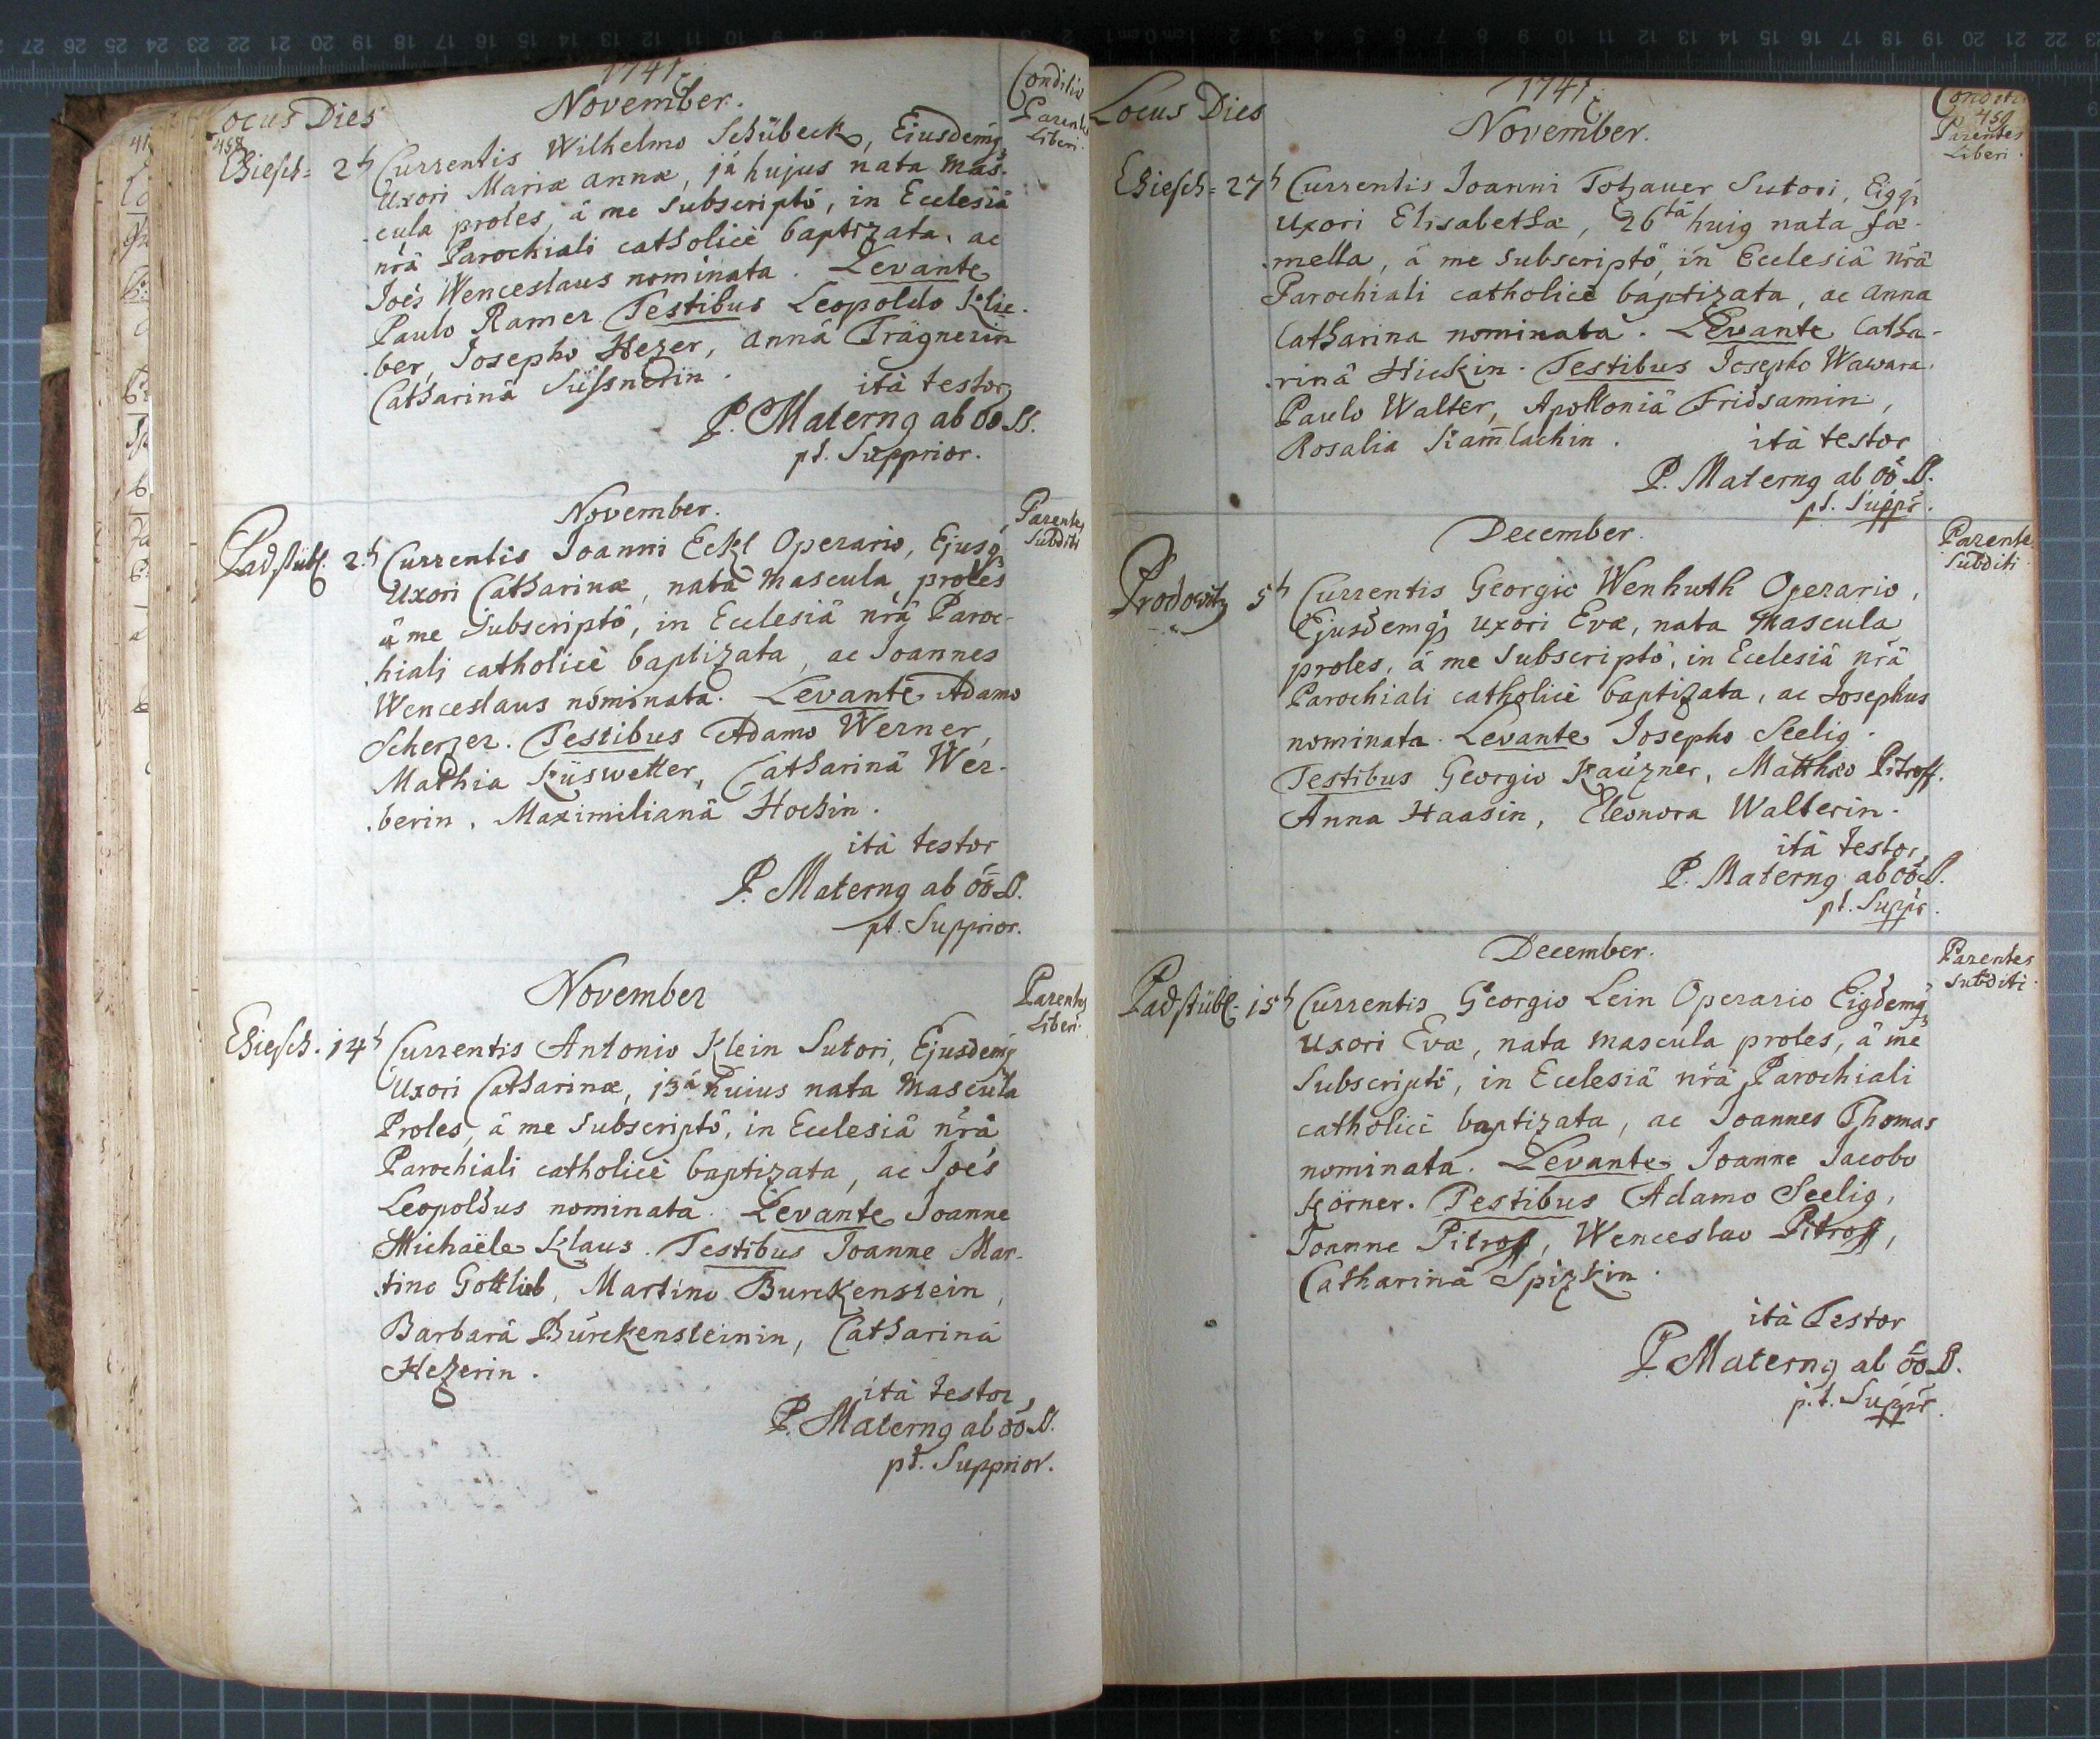 1741
Locus Dies
November.
Conditio
Parentes
Liberi.
458
Chiesch= 2t Currentis Wilhelmo Schübeck, Ejusdemq
Uxori Mariæ Annæ, ja hujus nata mas-
cula proles, â me subscriptô, in Ecclesiâ
nrâ Parochiali catholicè baptizata, ac
Joes Wenceslaus nominata. Levante
Paulo Ramer Testibus Leopoldo Klie-
ber, Josepho Hezer, Annâ Trägnerin
Catharinâ Süssnerin.
ità testor
P. Maternq ab OO SS.
pt. Supprior.
November.
Parentes
Subditi
Padstübl. 2t Currentis Joanni Eckl Operario, Ejusq
Uxori Catharinæ, nata mascula proles
â me subscriptô, in Ecclesiâ nrâ Paroc-
hiali catholicè baptizata, ac Joannes
Wenceslaus nominata. Levante Adamo
Scherzer. Testibus Adamo Werner,
Mathia Küswetter, Catharinâ Wer-
berin, Maximilianâ Hochin.
ità testor
P. Maternq ab OO S.
pt. Supprior.
November
Parentes
Liberi
Chiesch. 14t Currentis Antonio Klein Sutori, Ejusdemq
Uxori Catharinæ, 13â huius nata mascula
Proles, â me subscriptô, in Ecclesiâ nrâ
Parochiali catholicè baptizata, ac Joes
Leopoldus nominata. Levante Joanne
Michaële Klaus. Testibus Joanne Mar-
tino Gottlieb, Martino Burckenstein,
Barbarâ Burckensteinin, Catharina
Hezerin.
ità testor
P. Maternq ab OO S.
pt. Supprior.
1741
Locus Dies
November.
Conditio
p 459
Parentes
Liberi.
Chiesch= 27t Currentis Joanni Totzauer Sutori, Eiqq
uxori Elisabethæ, 26ta huiq nata fæ-
mella, â me subscriptô, in Ecclesiâ nrâ
Parochiali catholicè baptizata, ac Anna
Catharina nominata. Levante Catha-
rinâ Hickin. Testibus Josepho Wawara,
Paulo Walter, Apolloniâ Fridsamin,
Rosalia Kam̅lachin.
ità testor
P. Maternq ab OO S.
pt. Suppr.
December.
Parentes
Subditi
Prodowitz 5t Currentis Georgio Wenhuth Operario,
Ejusdemq uxori Evæ, nata Mascula
proles, â me subscriptô, in Ecclesiâ nrâ
Parochiali catholicè baptizata, ac Josephus
nominata. Levante Josepho Seelig.
Testibus Georgio Kauzner, Matthæo Pitroff.
Anna Haasin, Eleonora Walterin.
ità testor
P. Maternq ab OO S.
pt. Suppr.
December.
Parentes
Subditi
Padstübl. 15t Currentis Georgio Lein Operario Eiqdemq
uxori Evæ, nata mascula proles, â me
subscriptô, in Ecclesiâ nrâ Parochiali
catholicè baptizata, ac Joannes Thomas
nominata. Levante Joanne Jacobo
Körner. Testibus Adamo Seelig,
Joanne Pitroff, Wenceslao Pitroff,
Catharinâ Spizkin.
ità Testor
P. Maternq ab OO S.
p.t. Suppr.